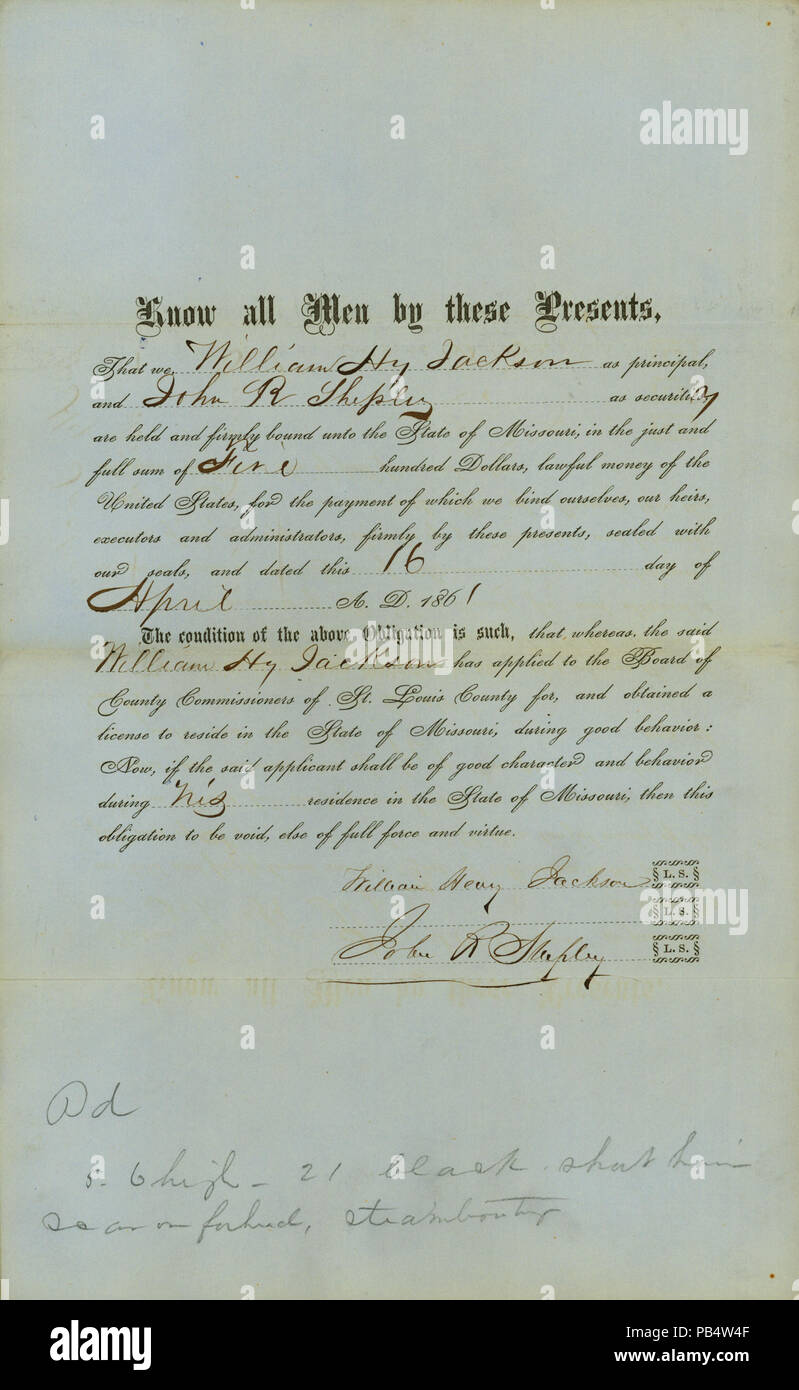 Know all Men by these Presents,
That we, William Hy Jackson as principal,
and John R Shepley as security
are held and firmly bound unto the State of Missouri, in the just and
full sum of Five hundred Dollars, lawful money of the
United States, for the payment of which we bind ourselves, our heirs,
executors and administrators, firmly by these presents, sealed with
our seals, and dated this 16 day of
April A. D. 1861
The condition of the above Obligation is such, that whereas, the said
William Hy Jackson has applied to the Board of
County Commissioners of St. Louis County for, and obtained a
license to reside in the State of Missouri, during good behavior:
Now, if the said applicant shall be of good character and behavior
during his residence in the State of Missouri, then this
obligation to be void, else of full force and virtue.
William Henry Jackson L. S.
L. S.
John R Shepley L. S.
Pd
5- 6 high - 21 black short hair
scar on forhed, steamboating
alamy
Image ID: PB4W4F
www.alamy.com